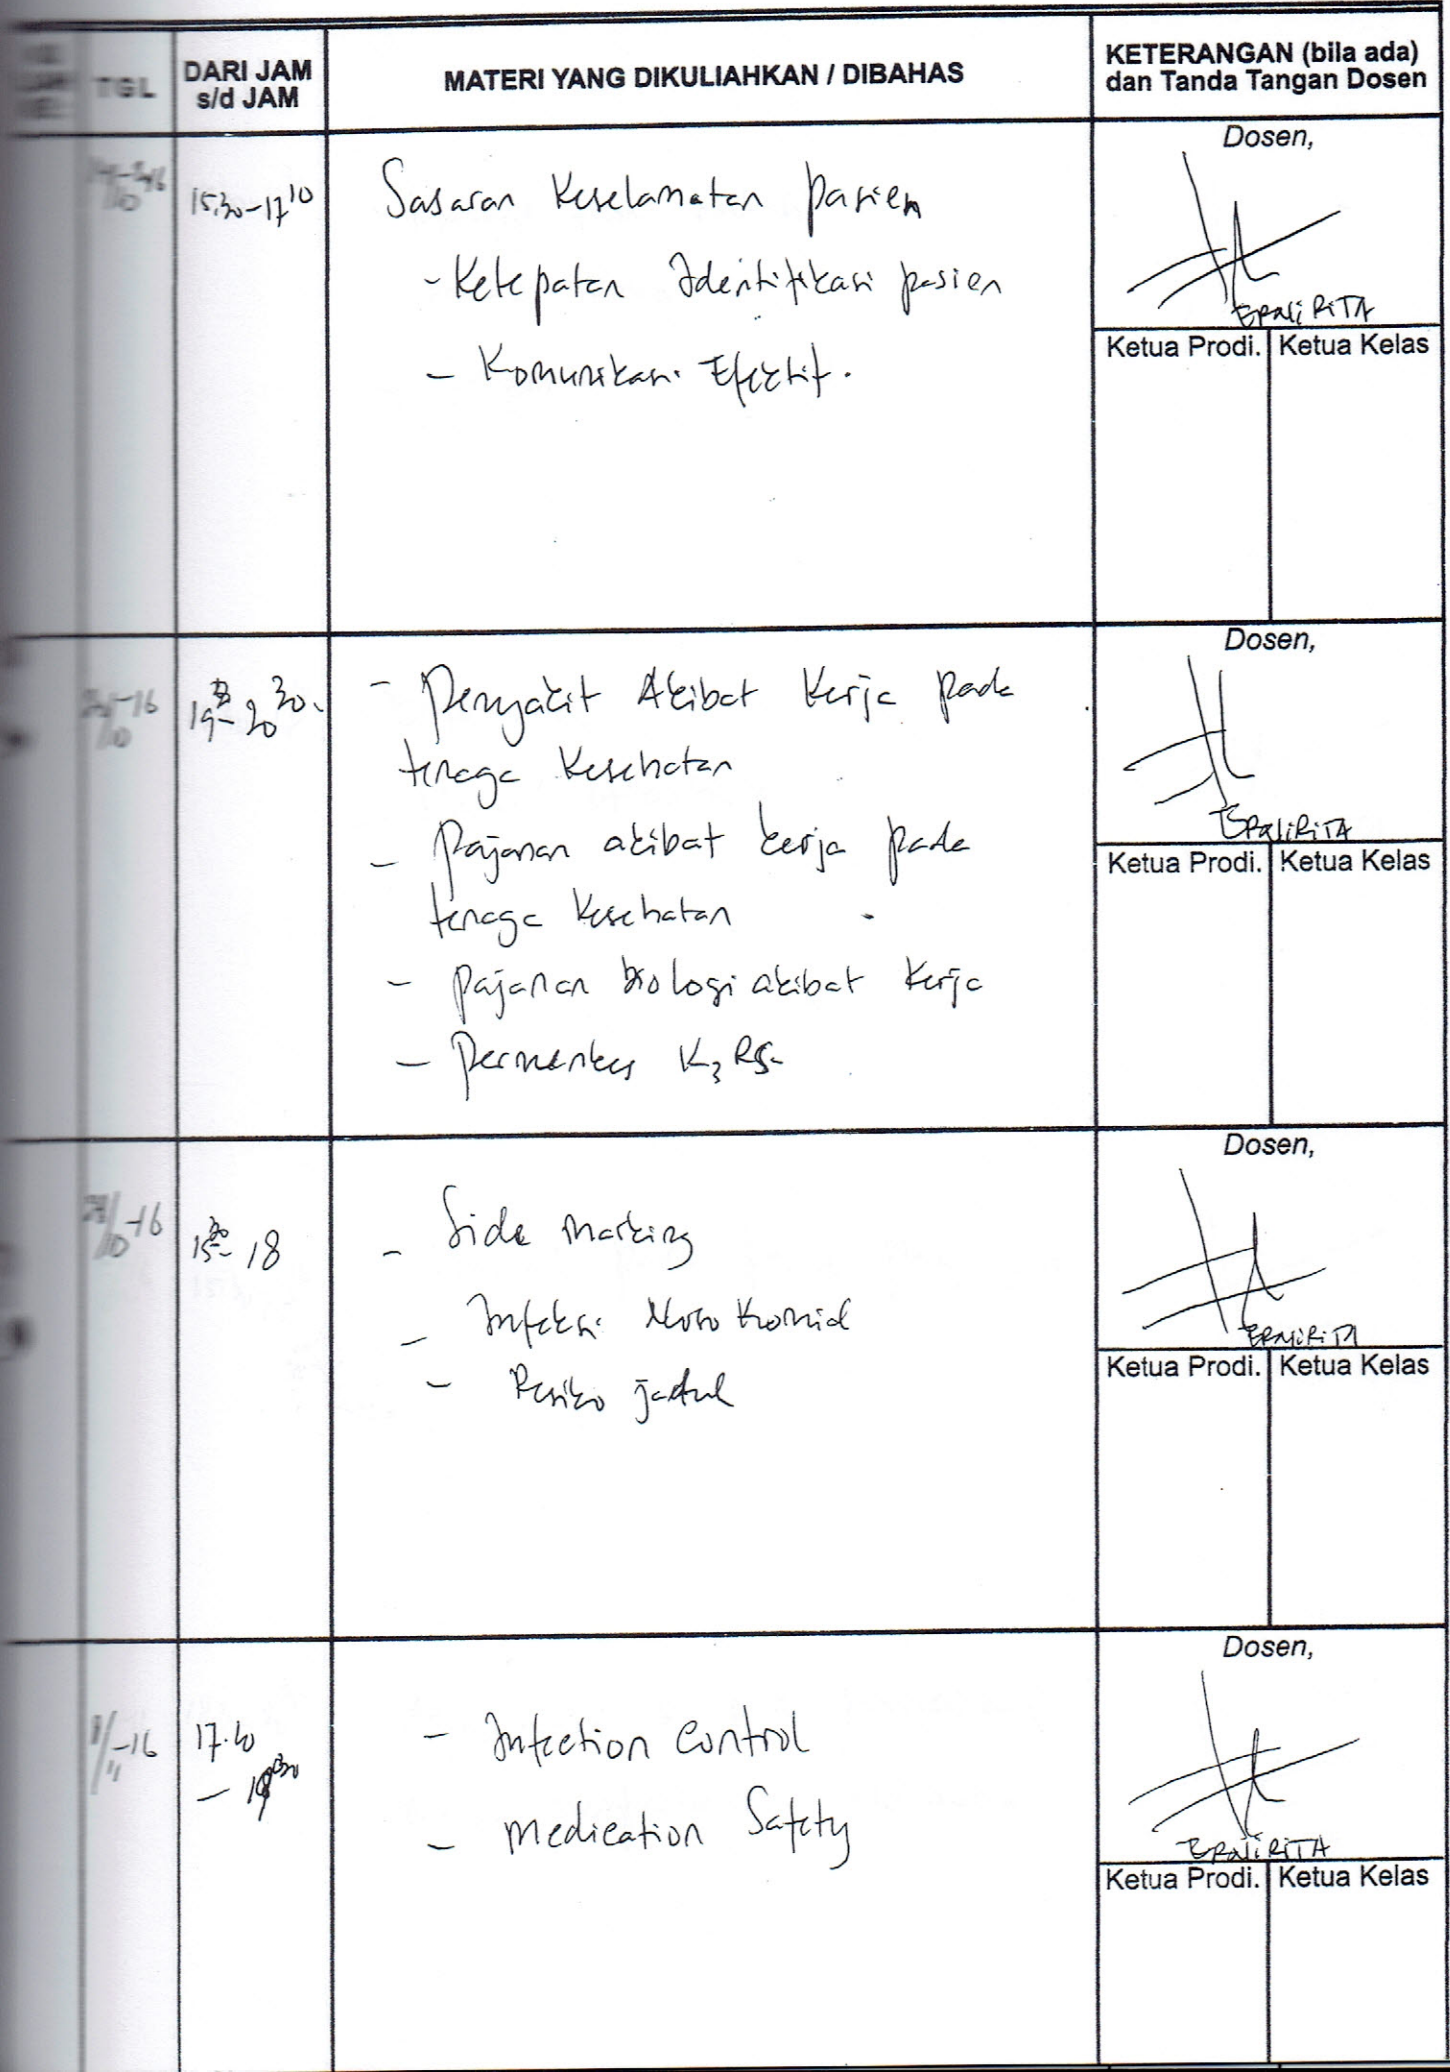 TGL
DARI JAM
s/d JAM
MATERI YANG DIKULIAHKAN / DIBAHAS
KETERANGAN (bila ada)
dan Tanda Tangan Dosen
15.30-17 10
Sasaran Keselamatan pasien
- Ketepatan Identifikasi pasien
- Komunikasi Efektif.
Dosen,
Ketua Prodi. Ketua Kelas
- Penyakit Akibat Kerja pada
tenaga Kesehatan
- Pajanan akibat kerja pada
tenaga Kesehatan
- Pajanan biologi akibat Kerja
- Permenkes K3 RS.
Dosen,
Ketua Prodi. Ketua Kelas
15 30 - 18
- Side Marking
- Infeksi Nosokomial
- Resiko jatuh
Dosen,
Ketua Prodi. Ketua Kelas
- Infection Control
- Medication Safety
Dosen,
Ketua Prodi. Ketua Kelas